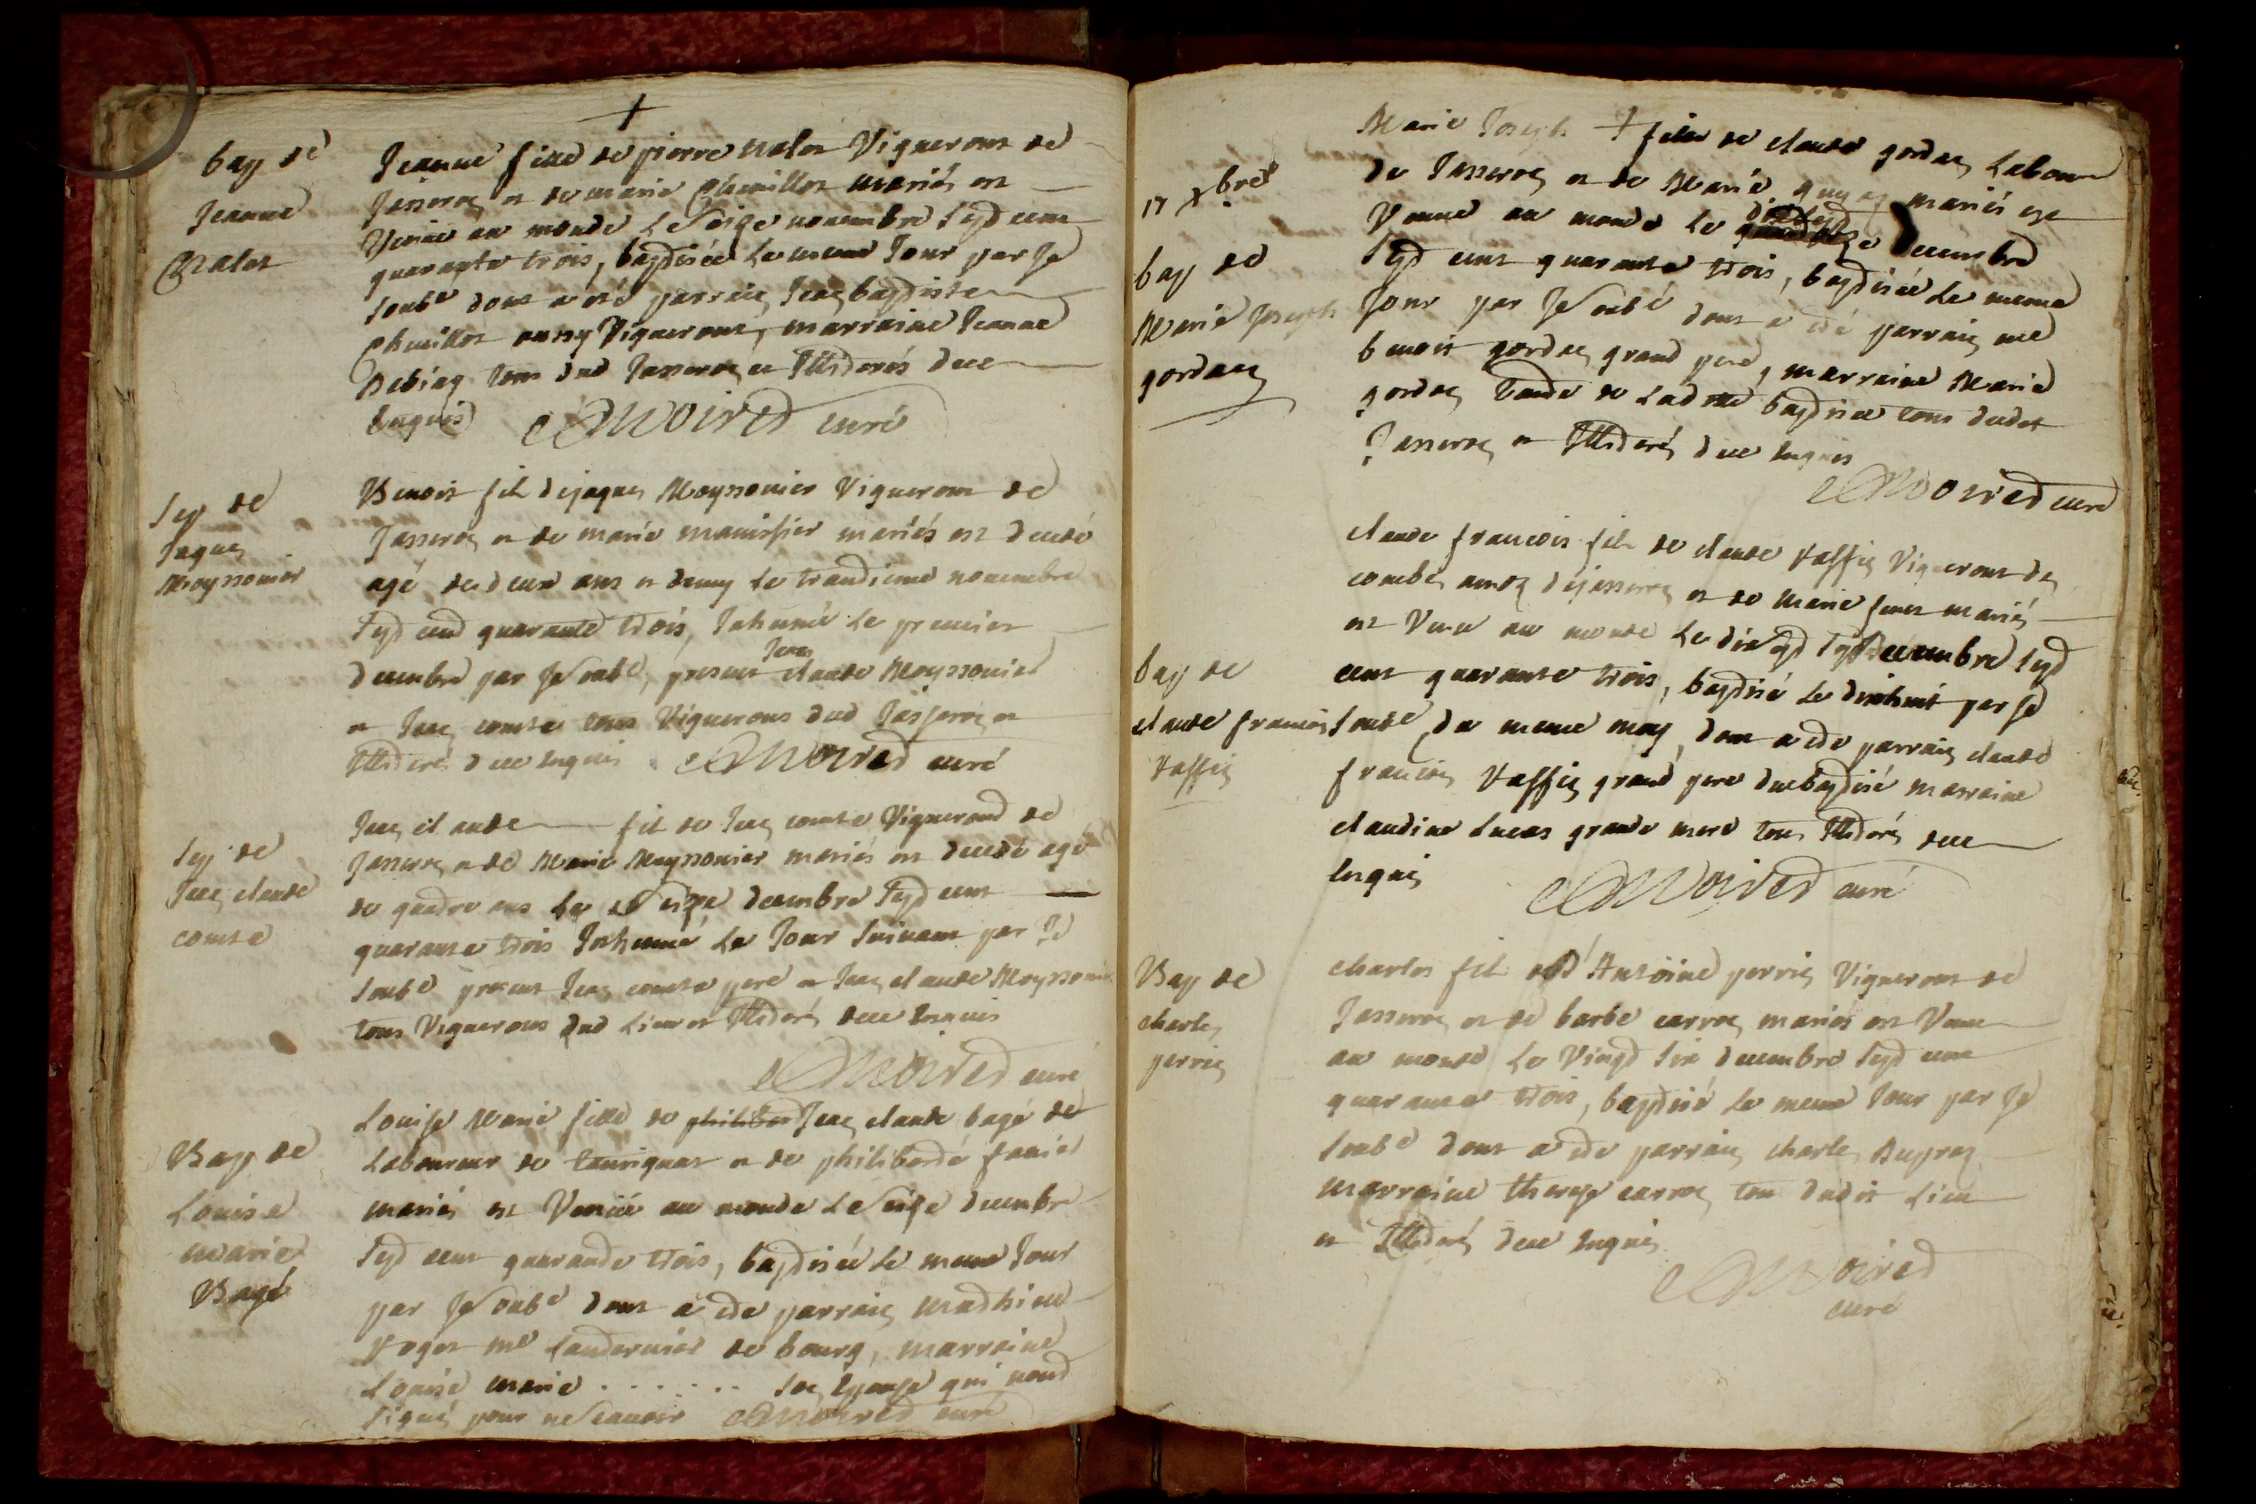 bap de
Jeanne
Malot
Jeanne fille de pierre malot Vigneront de
Jasseron et de marie Chevillot mariés est
Venüe au monde Le seize novembre sept cent
quarante trois, baptisée Le meme Jour par Je
soubé dont a eté parrain Jean baptiste
Chevillot aussy Vigneront, marraine Jeanne
tous dud Jasseron et Illiterés de ce
Enquis curé
Sep de
Jaques
Moyssonier
Benoit fils de jaques Moyssonier Vigneront de
Jasseron et de marie mariés est decedé
agé de deux ans et demy Le trantieme novembre
sept cent quarante trois, Inhumé Le premier
decembre par Je soubé, present Jean claude Moyssonier
et Jean comte tous Vignerons dud Jasseron et
Illiteré de ce Enquis curé
Sep de
Jean claude
comte
Jean claude fils de Jean comte Vigneront de
Jasseron et de Marie Moyssonier mariés est decedé agé
de quatre ans Le seize decembre sept cent
quarante trois Inhumé Le Jour suivant par Je
soubé present Jean comte pere et Jean claude Moyssonier
tous Vignerons dud Lieu et Illiterés de ce Enquis
curé
Bap de
Louise
marie
Bagé
Louise Marie fille de Jean claude bagé de
Laboureur de et de philiberte
mariés est Venüe au monde Le seize decembre
sept cent quarante trois, baptisée Le meme Jour
par Je soubé dont a ete parrain mathieu
me de bourg, marraine
Louise marie . . . . . . . son Epouse qui n'ont
signés pour ne scavoir curé
17 xbre
bap de
Marie Joseph
gordan
Marie Joseph fille de claude gordan Labour
de Jasseron et de Marie mariés est
Venue au monde Le decembre
sept cent quarante trois, baptisée Le meme
Jour par Je soubé dont a eté parrain me
benoit gordan grand pere, marraine Marie
gordan Tante de Ladtte baptisée tous dudit
Jasseron et Illiterés de ce Enquis
curé
bap de
claude francois
Vaffin
claude francois fils de claude Vaffin Vigneront de
de jasseron et de Marie mariés
est Venu au monde Le dix sept decembre sept
cent quarante trois, baptisé Le dixhuit par Je
soubé du meme moy, dont a ete parrain claude
francois Vaffin grand pere du baptisé marraine
claudine Lucas grande mere tous Illiterés de ce
Enquis curé
Bap de
charles
perrin
charles fils d'Antoine perrin Vigneront de
Jasseron et de barbe carron mariés est Venu
au monde Le Vingt six decembre sept cent
quarante trois, baptisé Le meme Jour par Je
soubé dont a ete parrain charles
marraine therese carron tous dudit Lieu
et Illiterés de ce Enquis
curé